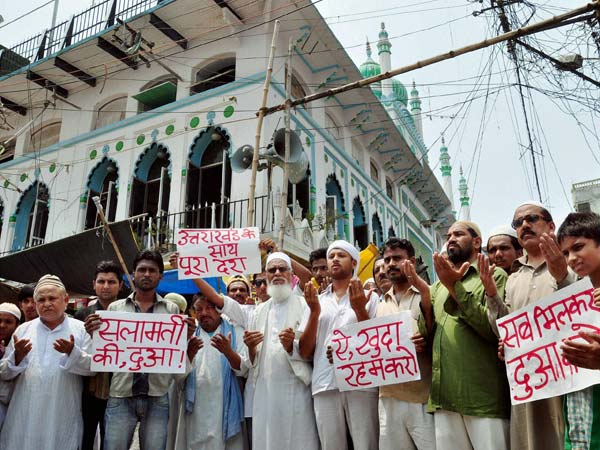 उत्तराखण्ड के
साथ
पूरा देश
सलामती
की, दुआ!
ऐ, खुदा
रहम करो
सब मिलकर
दुआ